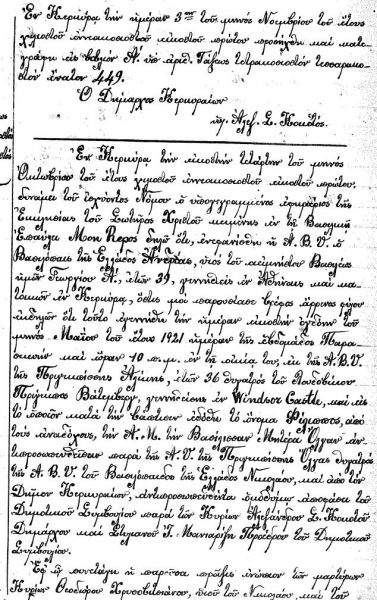 Ἐν Κερκύρᾳ τὴν ἡμέραν 3ην τοῦ μηνὸς Νοεμβρίου τοῦ ἔτους
χιλιοστοῦ ἐννεακοσιοστοῦ εἰκοστοῦ πρώτου προσήχθη καὶ κατε-
γράφη εἰς Α. ὑπ' ἀριθ. τάξεως τετρακοσιοστὸν τεσσαρακο-
στὸν ἔνατον 449.
Ὁ Δήμαρχος Κερκυραίων
Σ. Κόκοτος
Ἐν Κερκύρᾳ τὴν εἰκοστὴν τετάρτην τοῦ μηνὸς
Ὀκτωβρίου τοῦ ἔτους χιλιοστοῦ ἐννεακοσιοστοῦ εἰκοστοῦ πρώτου,
δυνάμει τοῦ ἰσχύοντος Νόμου ὁ ὑπογεγραμμένος ἐφημέριος τῆς
Ἐκκλησίας τοῦ Σωτῆρος Χριστοῦ κειμένης ἐν τῇ Βασιλικῇ
Ἐπαύλει Mon Repos δηλῶ ὅτι, ἐνεφανίσθη ἡ Α.Β.Υ. ὁ
Βασιλόπαις τῆς Ἑλλάδος Ἀνδρέας, υἱὸς τοῦ ἀειμνήστου Βασιλέως
ἡμῶν Γεωργίου Α., ἐτῶν 39, γεννηθεὶς ἐν Ἀθήναις καὶ κα-
τοικῶν ἐν Κερκύρᾳ, ὅστις μοὶ παρουσίασε βρέφος ἄρρενος γένους
ὅτι τοῦτο ἐγεννήθη τὴν ἡμέραν εἰκοστὴν ὀγδόην τοῦ
μηνὸς Μαΐου τοῦ ἔτους 1921 ἡμέραν τῆς ἑβδομάδος Παρα-
σκευὴν καὶ ὥραν 10 π.μ. ἐν τῇ οἰκίᾳ του, ἐκ τῆς Α.Β.Υ.
τῆς Πριγκιπίσσης Ἀλίκης, ἐτῶν 36 θυγατρὸς τοῦ Λουδοβίκου
Πρίγκιπος Βάτεμβεργ, γεννηθείσης ἐν Windsor Castle, καὶ εἰς
τὸ ὁποῖον κατὰ τὴν βάπτισιν ἐδόθη τὸ ὄνομα Φίλιππος, ἀπὸ
τοὺς ἀναδόχους, τὴν Α.Μ. τὴν Βασίλισσαν Μητέρα Ὄλγαν ἀν-
τιπροσωπευθεῖσαν παρὰ τῆς Α.Υ. τῆς Πριγκιπίσσης Ὄλγας θυγατρὸς
τῆς Α.Β.Υ. τοῦ Βασιλόπαιδος τῆς Ἑλλάδος Νικολάου, καὶ ἀπὸ τὸν
Δῆμον Κερκυραίων, ἀντιπροσωπευθέντα ὁμοθύμῳ ἀποφάσει τοῦ
Δημοτικοῦ Συμβουλίου παρὰ τοῦ Κυρίου Ἀλεξάνδρου Σ. Κοκότου
Δημάρχου καὶ Στυλιανοῦ Ι. Μανιαρίζη Προέδρου τοῦ Δημοτικοῦ
Συμβουλίου.
Ἐφ' ᾧ συνετάγη ἡ παροῦσα πρᾶξις ἐνώπιον τῶν μαρτύρων
Κυρίων Θεοδώρου υἱοῦ τοῦ Νικολάου καὶ τοῦ